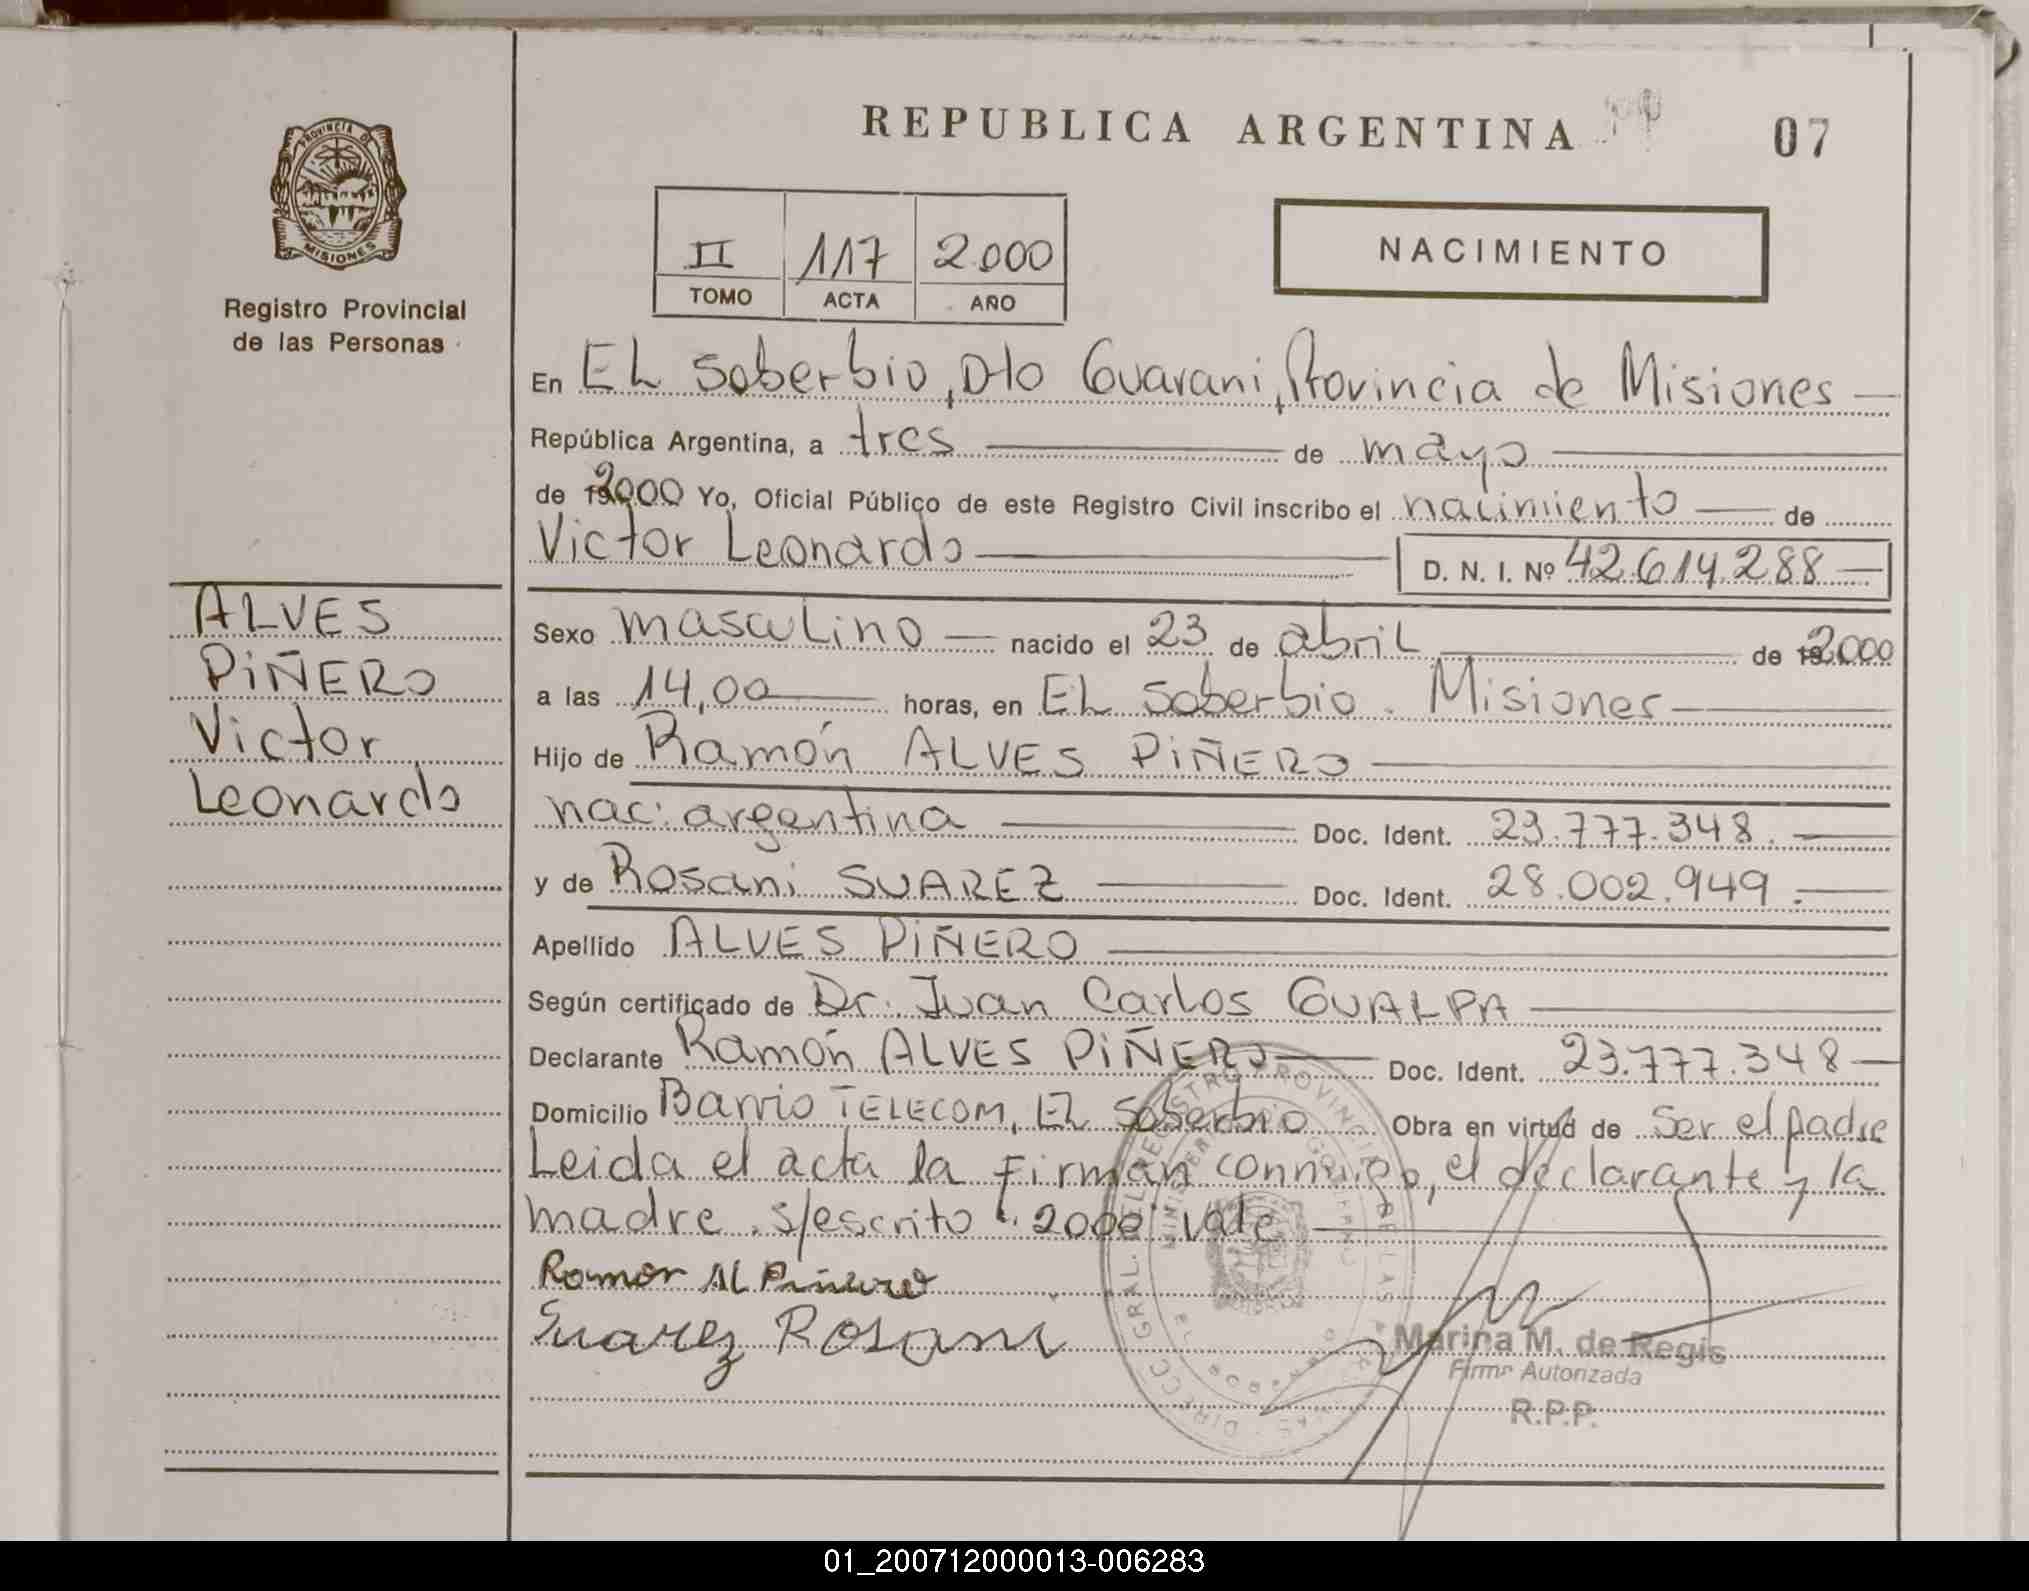 REPUBLICA ARGENTINA
07
PROVINCIA DE
MISIONES
Registro Provincial
de las Personas
II 117 2000
TOMO ACTA AÑO
NACIMIENTO
En EL Soberbio, Dto Guarani, Provincia de Misiones
República Argentina, a tres de mayo
de 2000 Yo, Oficial Público de este Registro Civil inscribo el nacimiento de
Victor Leonardo D. N. I. Nº 42.614.288
ALVES
PIÑERO
Victor
Leonardo
Sexo masculino nacido el 23 de abril de 2000
a las 14,00 horas, en EL Soberbio. Misiones
Hijo de Ramón ALVES PIÑERO
nac: argentina Doc. Ident. 23.777.348.
y de Rosani SUAREZ Doc. Ident. 28.002.949.
Apellido ALVES PIÑERO
Según certificado de Dr. Juan Carlos GUALPA
Declarante Ramón ALVES PIÑERO Doc. Ident. 23.777.348
Domicilio Barrio TELECOM, EL Soberbio Obra en virtud de Ser el padre
Leida el acta la Firman conmigo, el declarante y la
madre. s/escrito: 2000 vale
Ramon AL Piñero
Suarez Rosani
Marina M. de Regis
Firma Autorizada
R.P.P.
01_200712000013-006283